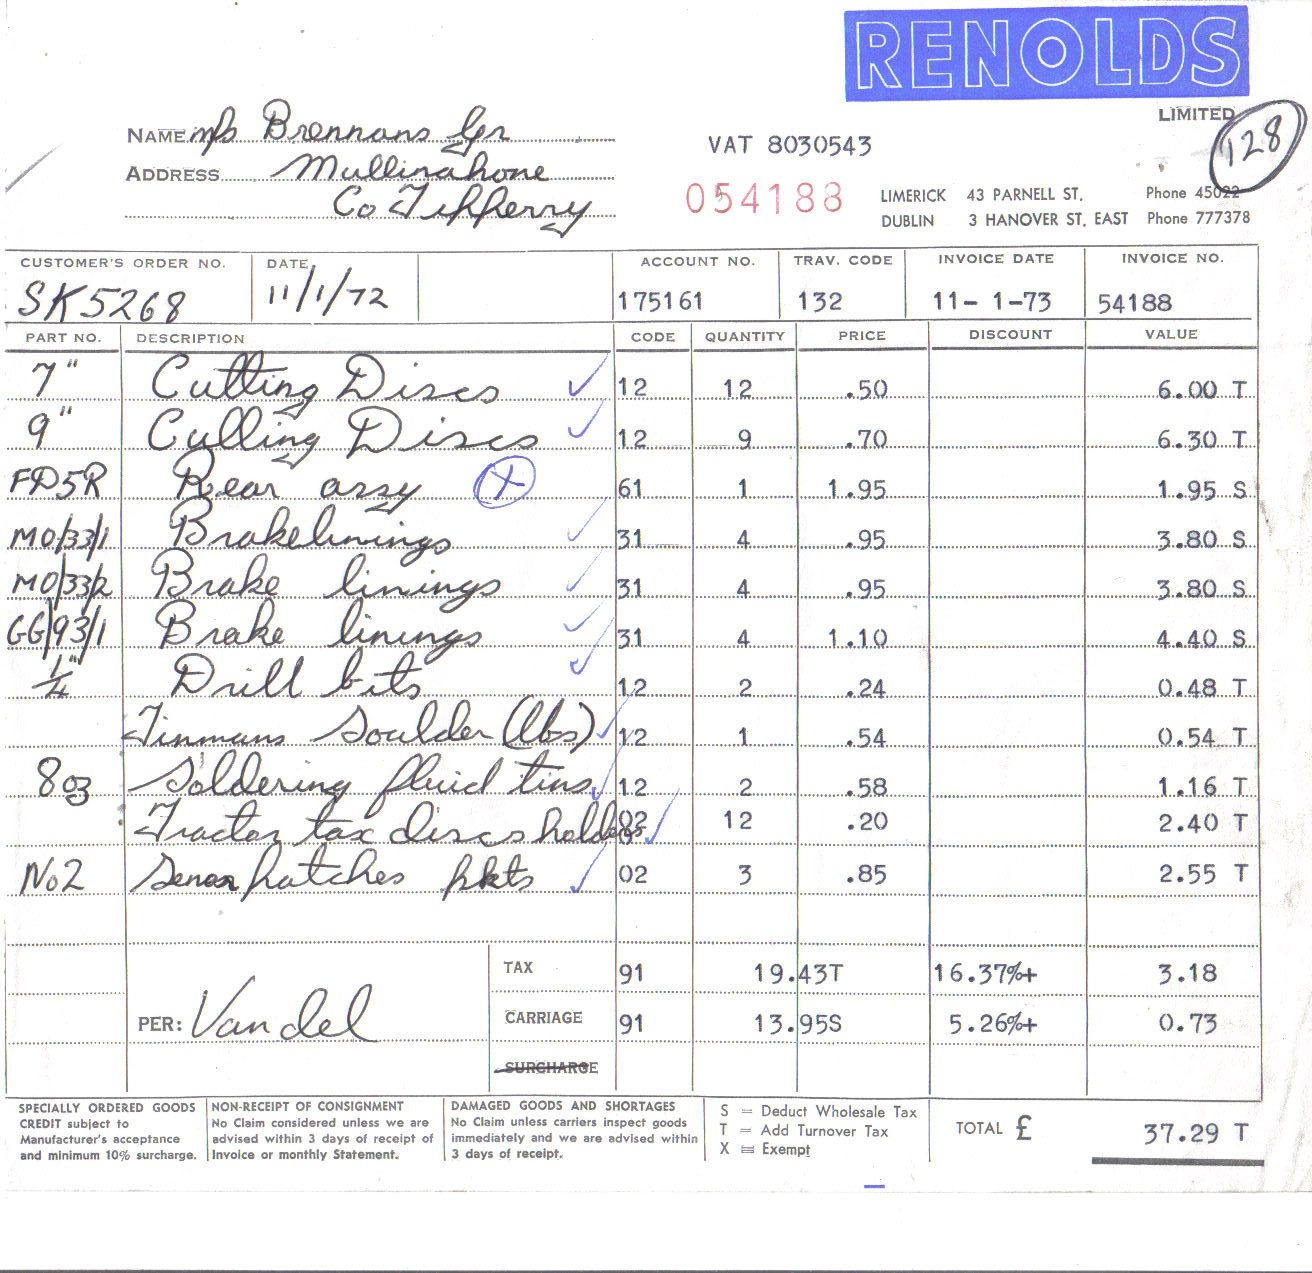 RENOLDS
LIMITED
128
NAME m/s Brennans Gr
ADDRESS Mullinahone
Co Tipperry
VAT 8030543
054188
LIMERICK 43 PARNELL ST. Phone 45022
DUBLIN 3 HANOVER ST, EAST Phone 777378
CUSTOMER'S ORDER NO. DATE ACCOUNT NO. TRAV. CODE INVOICE DATE INVOICE NO.
SK5268 11/1/72 175161 132 11- 1-73 54188
PART NO. DESCRIPTION CODE QUANTITY PRICE DISCOUNT VALUE
7" Cutting Discs 12 12 .50 6.00 T
9" Cutting Discs 12 9 .70 6.30 T
FD5R Rear assy X 61 1 1.95 1.95 S
MO/33/1 Brakelinings 31 4 .95 3.80 S
MO/33/2 Brake linings 31 4 .95 3.80 S
GG/93/1 Brake linings 31 4 1.10 4.40 S
1/4" Drill bits 12 2 .24 0.48 T
Tinmans Soulder (lbs) 12 1 .54 0.54 T
8oz Soldering fluid tins 12 2 .58 1.16 T
Tractor tax discs holders 02 12 .20 2.40 T
No2 patches pkts 02 3 .85 2.55 T
TAX 91 19.43T 16.37%+ 3.18
PER: Vandel CARRIAGE 91 13.95S 5.26%+ 0.73
SURCHARGE
SPECIALLY ORDERED GOODS
CREDIT subject to
Manufacturer's acceptance
and minimum 10% surcharge.
NON-RECEIPT OF CONSIGNMENT
No Claim considered unless we are
advised within 3 days of receipt of
Invoice or monthly Statement.
DAMAGED GOODS AND SHORTAGES
No Claim unless carriers inspect goods
immediately and we are advised within
3 days of receipt.
S = Deduct Wholesale Tax
T = Add Turnover Tax
X = Exempt
TOTAL £ 37.29 T